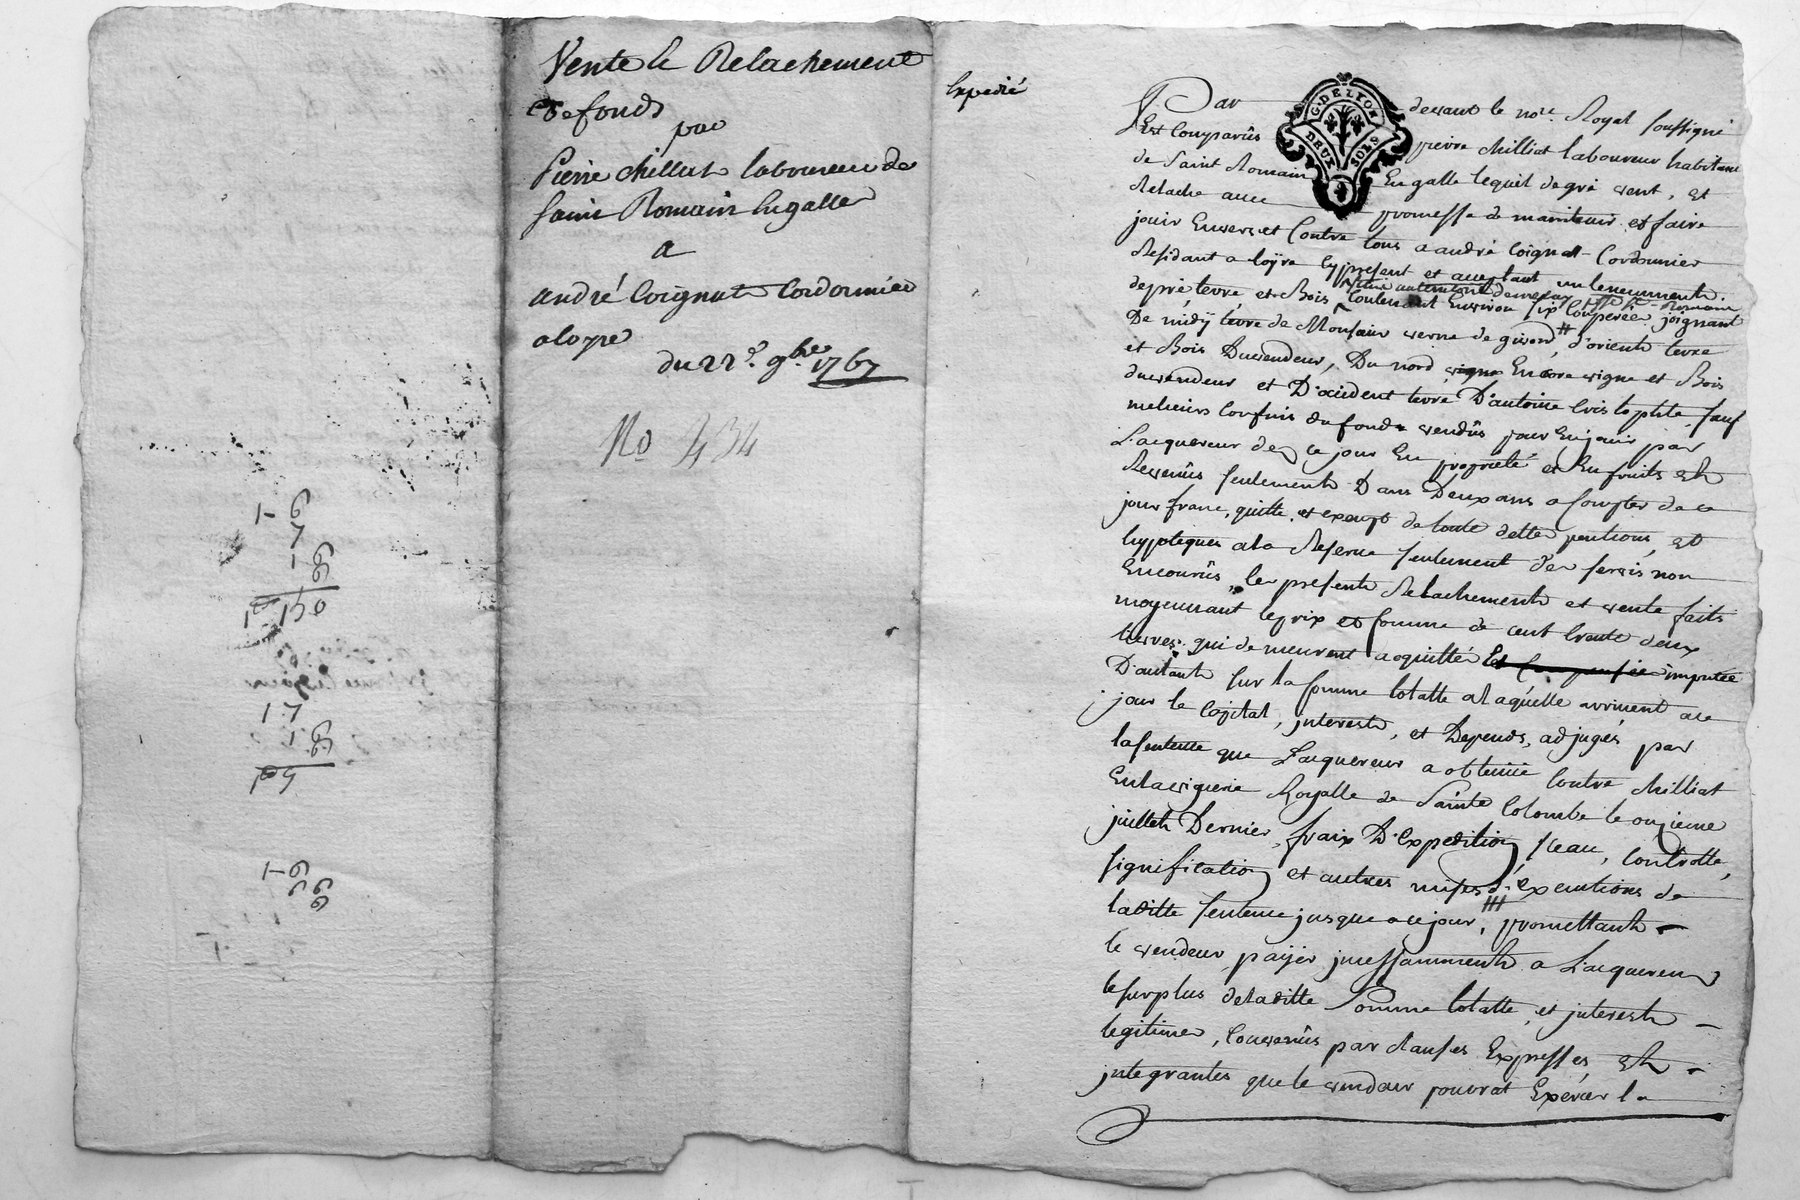 1-6
7
1 6
6
130
17
1.6
6
109
1-6
6 6
6
Vente & Relachement
de fonds
par
Pierre Milliat laboureur de
Saint Romain Engalle
a
andré Coignat Cordonnier
a loyre
du 22e. 9bre 1767
No 434
Expedié
G. DE LYON
DEUX SOLS
Par devant le nore. Royal soussigné
Est Comparûs pierre Milliat laboureur habitant
de Saint Romain En galle lequel de gré vent, et
Relache avec promesse de maintenir et faire
jouir Envers et Contre tous a andré Coignat Cordonnier
Residant a loÿre cy present et acceptant un tenement
de pré terre et Bois Contenant Environ six Couperée joignant
De midÿ terre de Monsieur verne de givord # d'orient terre
et Bois Duvendeur, Du nord vigne Encore vigne et Bois
duvendeur et D'occident terre D'antoine sauf
melieurs Confins du fonds vendûs pour Enjouir par
L'acquereur de ce jour En proprieté et En fruits Et
Revenûs seulement Dans Deux ans a Compter de ce
jour franc, quitte, et exempt de toute dette pentions, et
hypoteques a la Reserve seulement des servis non
Encourûs, les presents Relachement et vente faits
moyennant le prix et somme de cent trente deux
livres qui demeurent acquittée imputée
D'autant sur la somme totalle a laquelle arrivent a ce
jour le Capital, interests, et Depends, adjugés par
la sentence que L'acquereur a obtenüe Contre Milliat
En la viguerie Royalle de Sainte Colombe le onzieme
juillet Dernier, fraix D'expedition, sceau, Controlle,
signification et autres mises d'executions de
laditte sentence jusque a ce jour, # promettant
le vendeur paÿer jncessamment a L'acquereur
le surplus de laditte Somme totalle, et jnterest
legitimes, Convenûs par clauses Expresses, Et
jntegrantes que le vendeur pourrat Exercer la